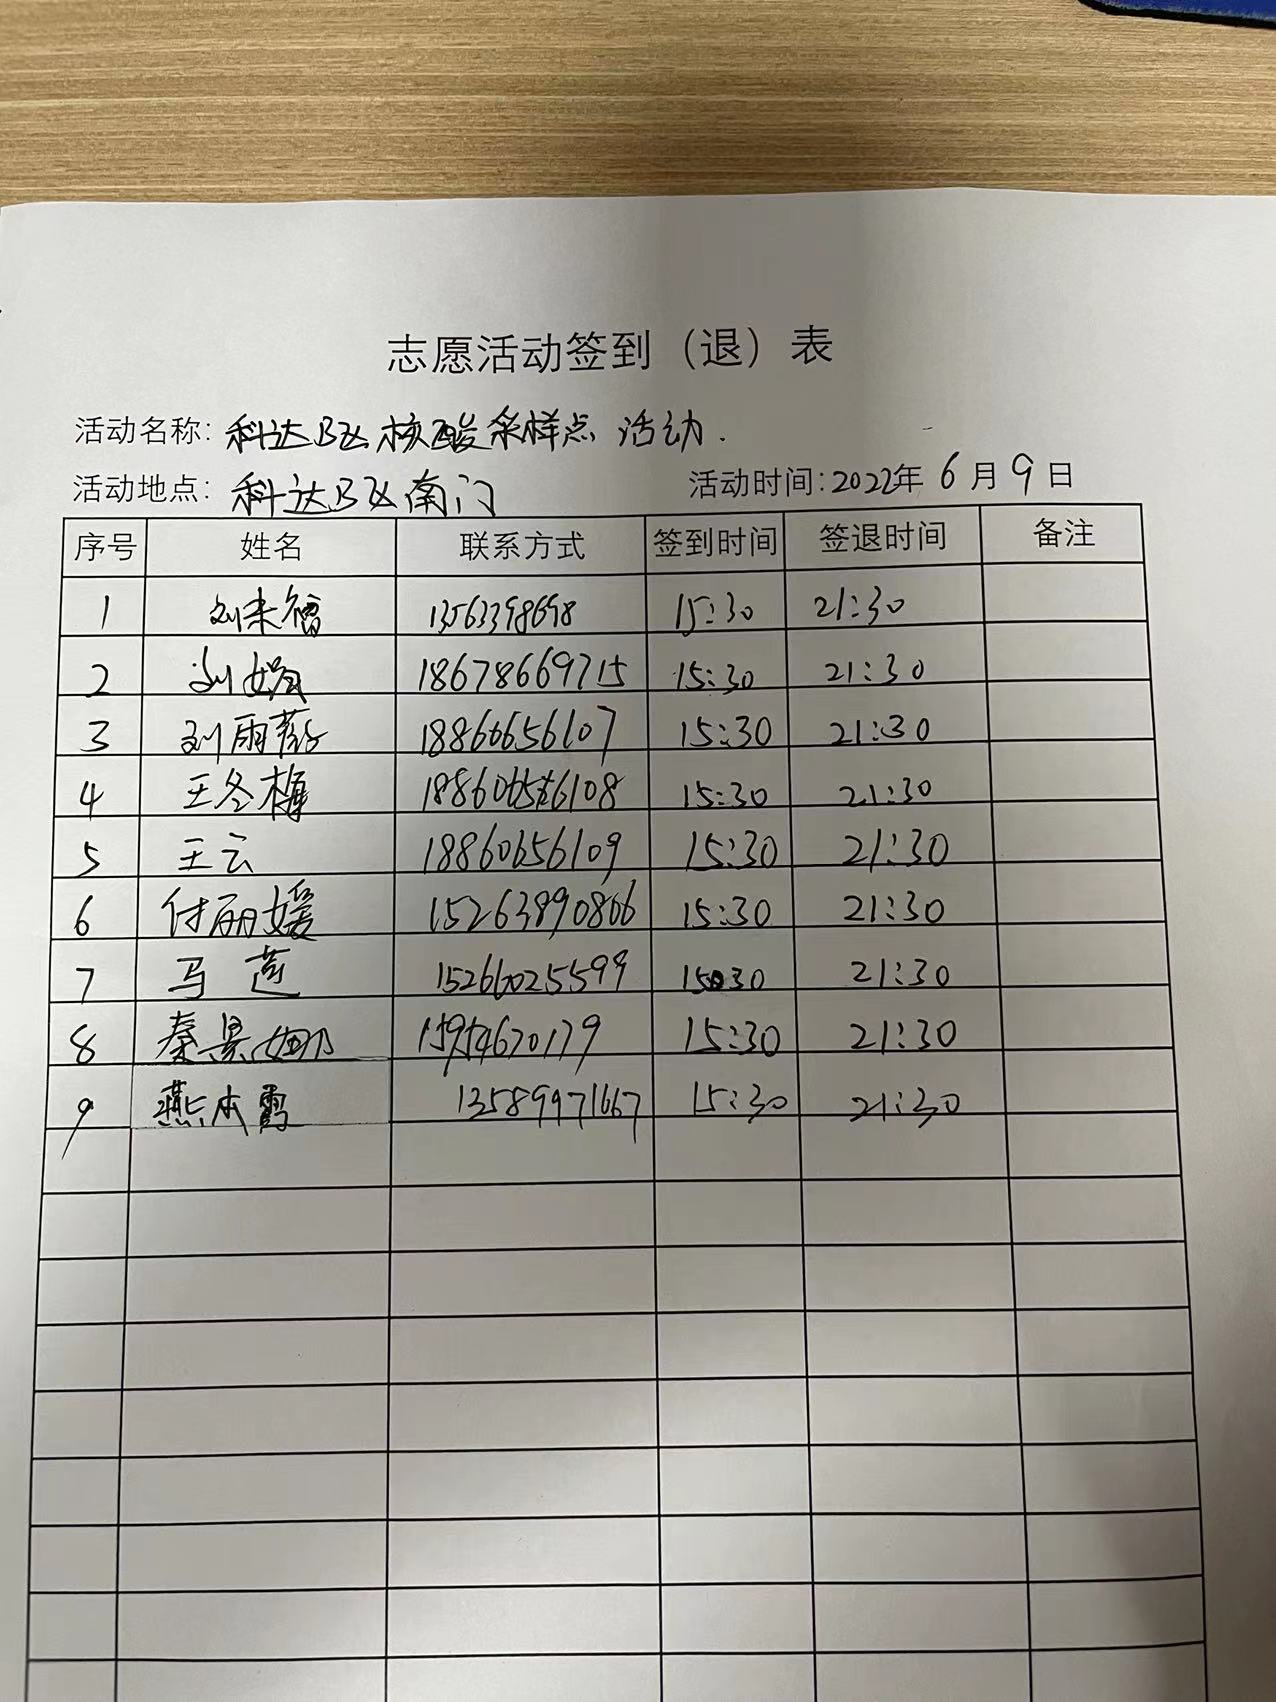 志愿活动签到（退）表
活动名称: 科达B区核酸采样点 活动.
活动地点: 科达B区南门 活动时间:2022年 6月 9日
序号 姓名 联系方式 签到时间 签退时间 备注
1 刘来福 13563398698 15:30 21:30
2 刘娟 18678669715 15:30 21:30
3 刘雨 18860656107 15:30 21:30
4 王冬梅 18860656108 15:30 21:30
5 王云 18860656109 15:30 21:30
6 付丽媛 15263890866 15:30 21:30
7 马莲 15266025599 15:30 21:30
8 秦景娜 15954670179 15:30 21:30
9 燕本霞 13589971667 15:30 21:30